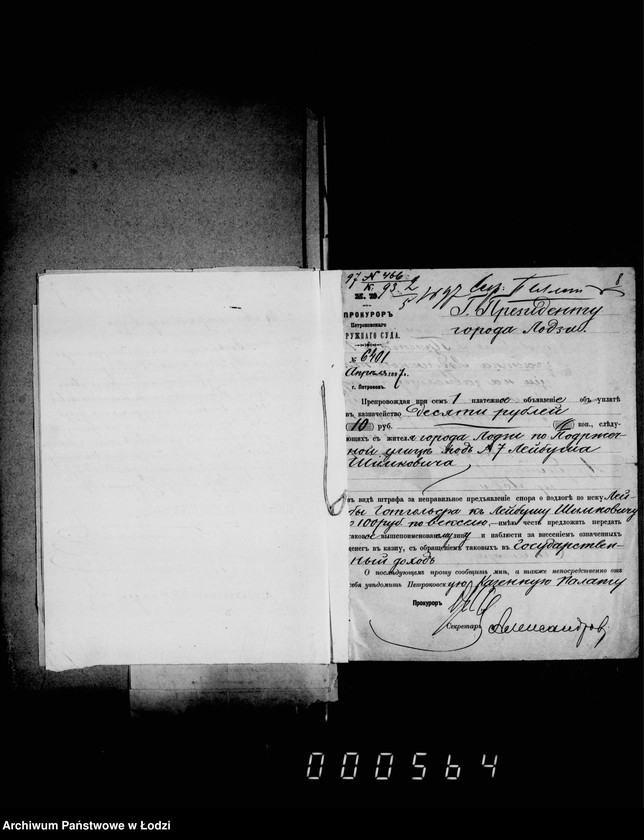 97 N 466
К. 93. 2
5
8
М. Ю.
ПРОКУРОРЪ
Петроковскаго
РУЖНАГО СУДА.
№ 6401
Апрѣля 1897 г.
г. Петроковъ.
Г. Президенту
города Лодзи.
Препровождая при семъ 1 платежное объявленіе объ уплатѣ
въ казначейство Десяти рублей
10 руб. коп., слѣду-
ющихъ съ жителя города Лодзи по
ной улицѣ подъ № 7 Лейбуша
Шмиковича
въ видѣ штрафа за неправильное предъявленіе спора о подлогѣ по иску Лей-
бы Готгольда къ Лейбушу Шмиковичу
о 100 руб по векселю, —имѣю честь предложить передать
таковое вышепоименованному лицу и наблюсти за внесеніемъ означенныхъ
денегъ въ казну, съ обращеніемъ таковыхъ въ Государствен-
ный доходъ
О послѣдующемъ прошу сообщить мнѣ, а также непосредственно отъ
себя увѣдомить Петроковскую Казенную Палату
Прокуроръ
Секретарь Александровъ
000564
Archiwum Państwowe w Łodzi